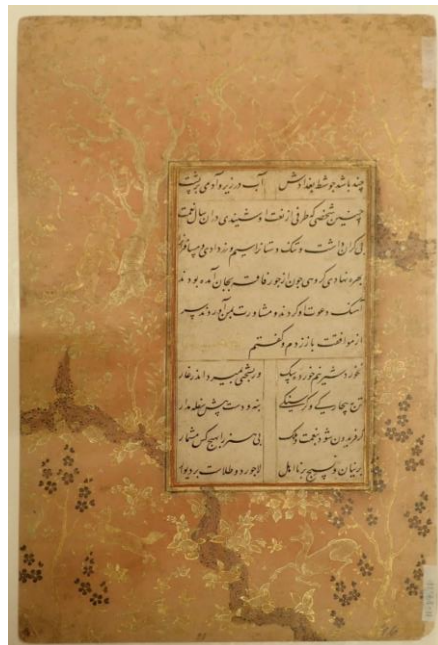 چند باشد جو شط بغدادش آب در زیر و آدمی بر پشت
چنین شخصی که طرفی از نعت او شنیدی دران سال نعمت
بی کران داشت و تنک دستانرا سیم و زر دادی و مسافرانرا
نهادی کروهی چون از جور فاقت بجان آمده بودند
آهنک دعوت او کردند و مشاورت بمن آوردند سر
از موافقت باز زدم و کفتم
نخورد شیر نیم خورده سک ور بسختی بمیرد اندر غار
تن بیچارکی و کرسنکی بنه و دست پیش سفله مدار
کر فریدون شود بنعمت و ملک بی هنر را بهیچ کس مشمار
پرنیان و نسیج بر نااهل لاجورد و طلاست بر دیوار